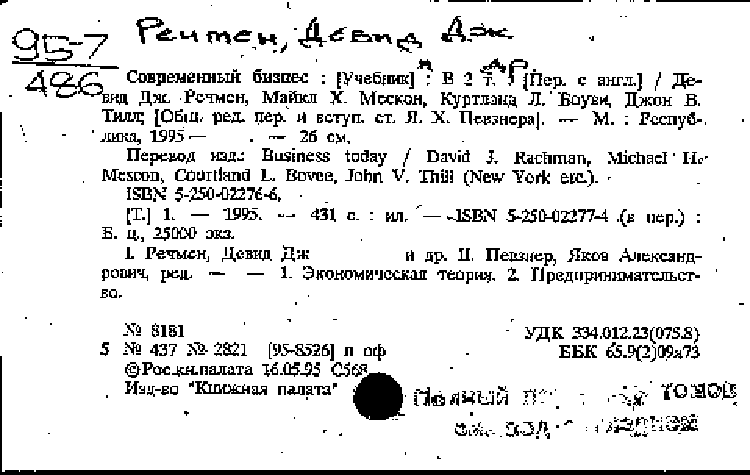 Речмен, Девид Дж
95-7
486
Современный бизнес : [Учебник] : В 2 т. : [Пер. с англ.] / Де-
вид Дж. Речмен, Майкл Х. Мескон, Куртланд Л. Боуви, Джон В.
Тилл; [Общ. ред. пер. и вступ. ст. Я. Х. Певзнера]. — М. : Респуб-
лика, 1995 — . — 26 см.
Перевод изд.: Business today / David J. Rachman, Michael H.
Mescon, Courtland L. Bovee, John V. Thill (New York etc.).
ISBN 5-250-02276-6,
[Т.] 1. — 1995. — 431 с. : ил. — ISBN 5-250-02277-4 (в пер.) :
Б. ц., 25000 экз.
I. Речмен, Девид Дж и др. II. Певзнер, Яков Александ-
рович, ред. — — 1. Экономическая теория. 2. Предпринимательст-
во.
№ 8181
УДК 334.012.23(075.8)
5 № 437 № 2821 [95-8526] п оф
ББК 65.9(2)09я73
© Рос.кн.палата 16.05.95 С568
Изд-во "Книжная палата"
ПОЛНЫЙ ТОМОВ